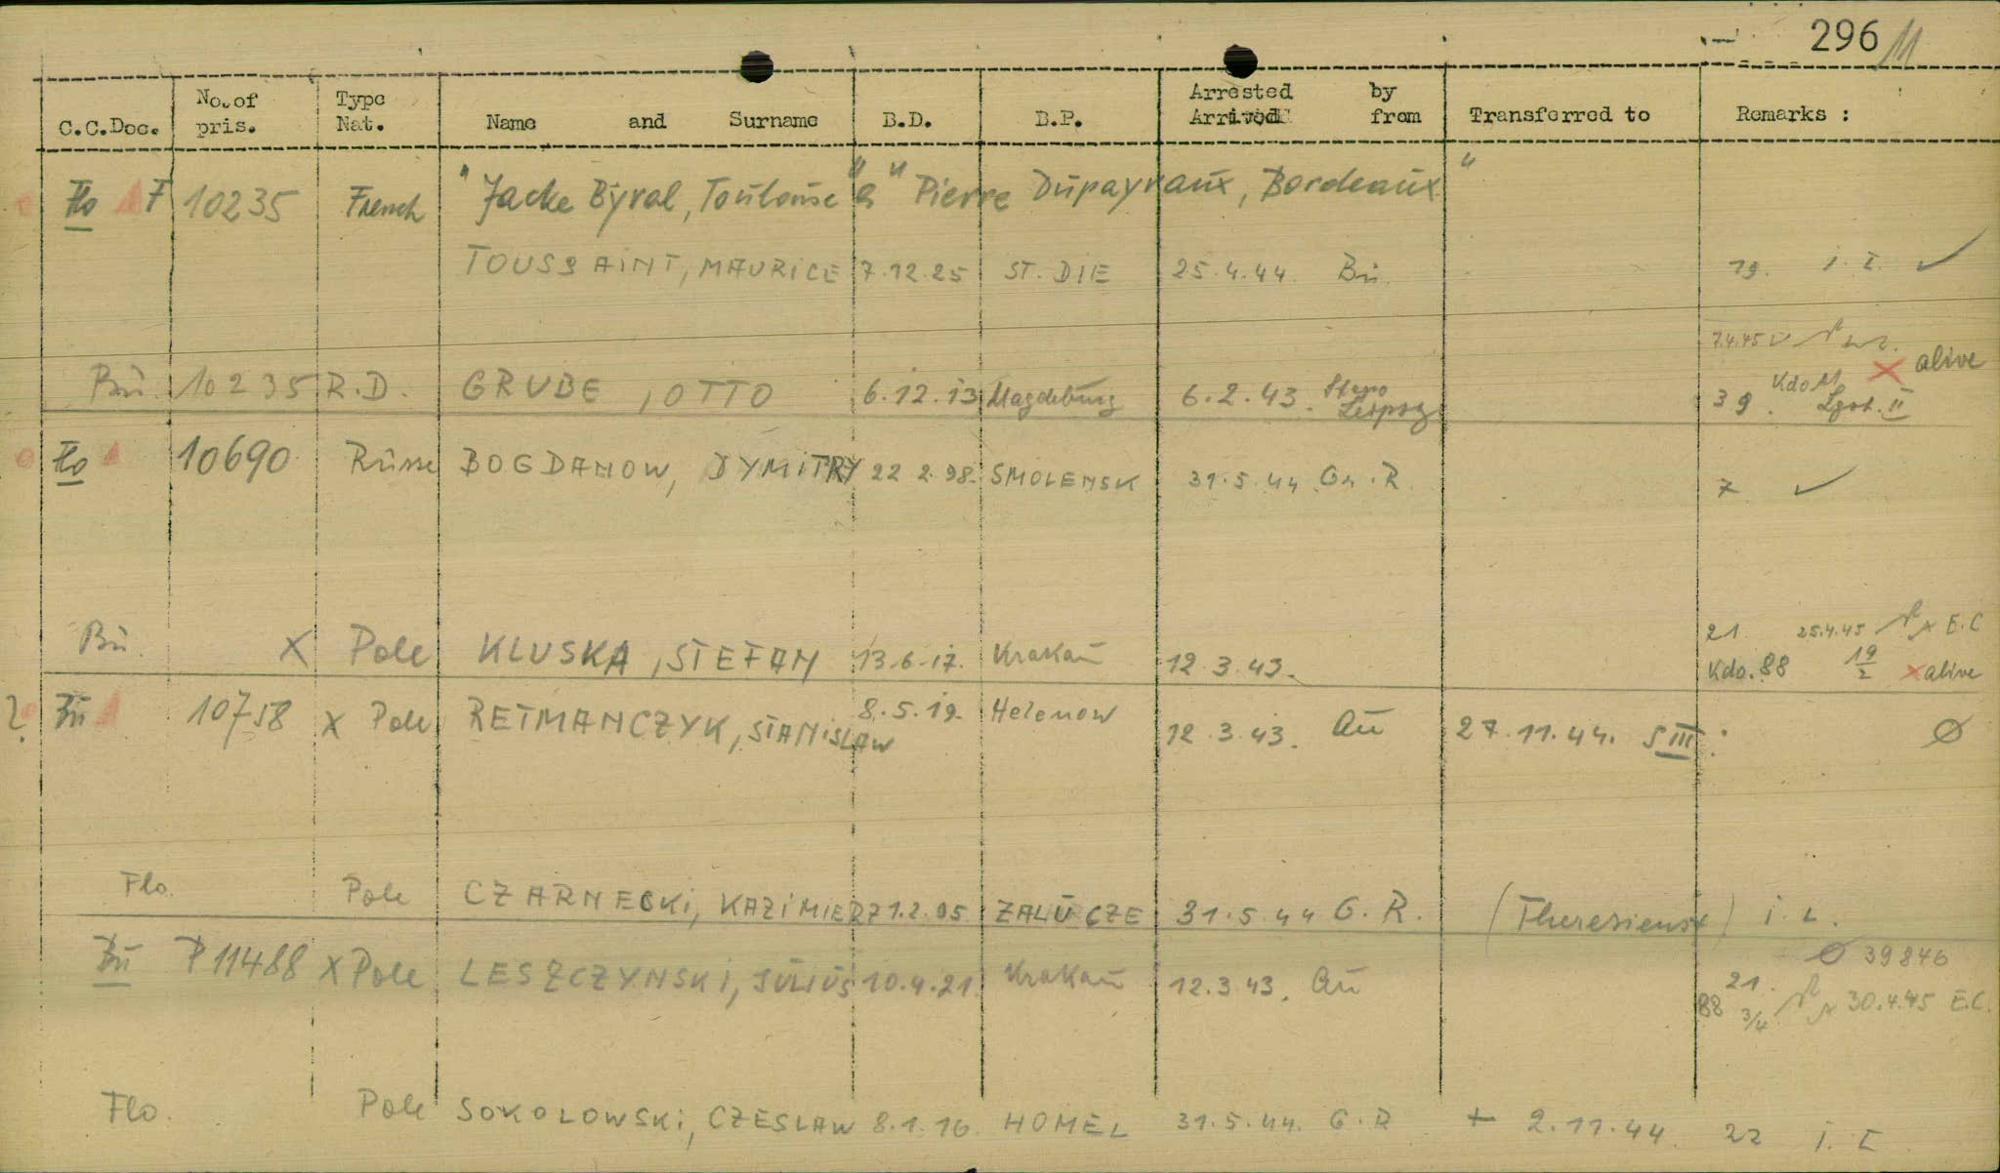 296
No. of Type Arrested by
C.C.Doc. pris. Nat. Name and Surname B.D. B.P. Arrived from Transferred to Remarks :
Flo F 10235 French "Jacke Byral, Toulouse" & "Pierre Dupayraux, Bordeaux"
TOUSSAINT, MAURICE 7.12.25 ST. DIE 25.4.44 Bü. 19. i. I. ✓
7.4.45
alive
Bü. 10235 R.D. GRUBE, OTTO 6.12.13 Magdeburg 6.2.43. Stapo Leipzg 39. Kdo M X Lgst. II
Flo 10690 Russe BOGDANOW, DYMITRY 22 2.98. SMOLENSK 31.5.44 Gr.R. 7 ✓
21 25.4.45 E.C
Bü. X Pole KLUSKA, STEFAN 13.6.17. Krakau 12.3.43. Kdo. 88 19/2 X alive
? Bü 10758 X Pole RETMANCZYK, STANISLAW 8.5.19. Helenow 12.3.43. Au 27.11.44. S III. Ø
Flo. Pole CZARNECKI, KAZIMIERZ 1.2.05 ZALUCZE 31.5.44 G.R. (Theresienst) i. L.
Ø 39846
Bü P 11488 X Pole LESZCZYNSKI, JULIUS 10.4.21. Krakau 12.3.43. Au 21.
88 3/4 30.4.45 E.C.
Flo. Pole SOKOLOWSKI, CZESLAW 8.1.16. HOMEL 31.5.44. G.R + 2.11.44 22 i. I